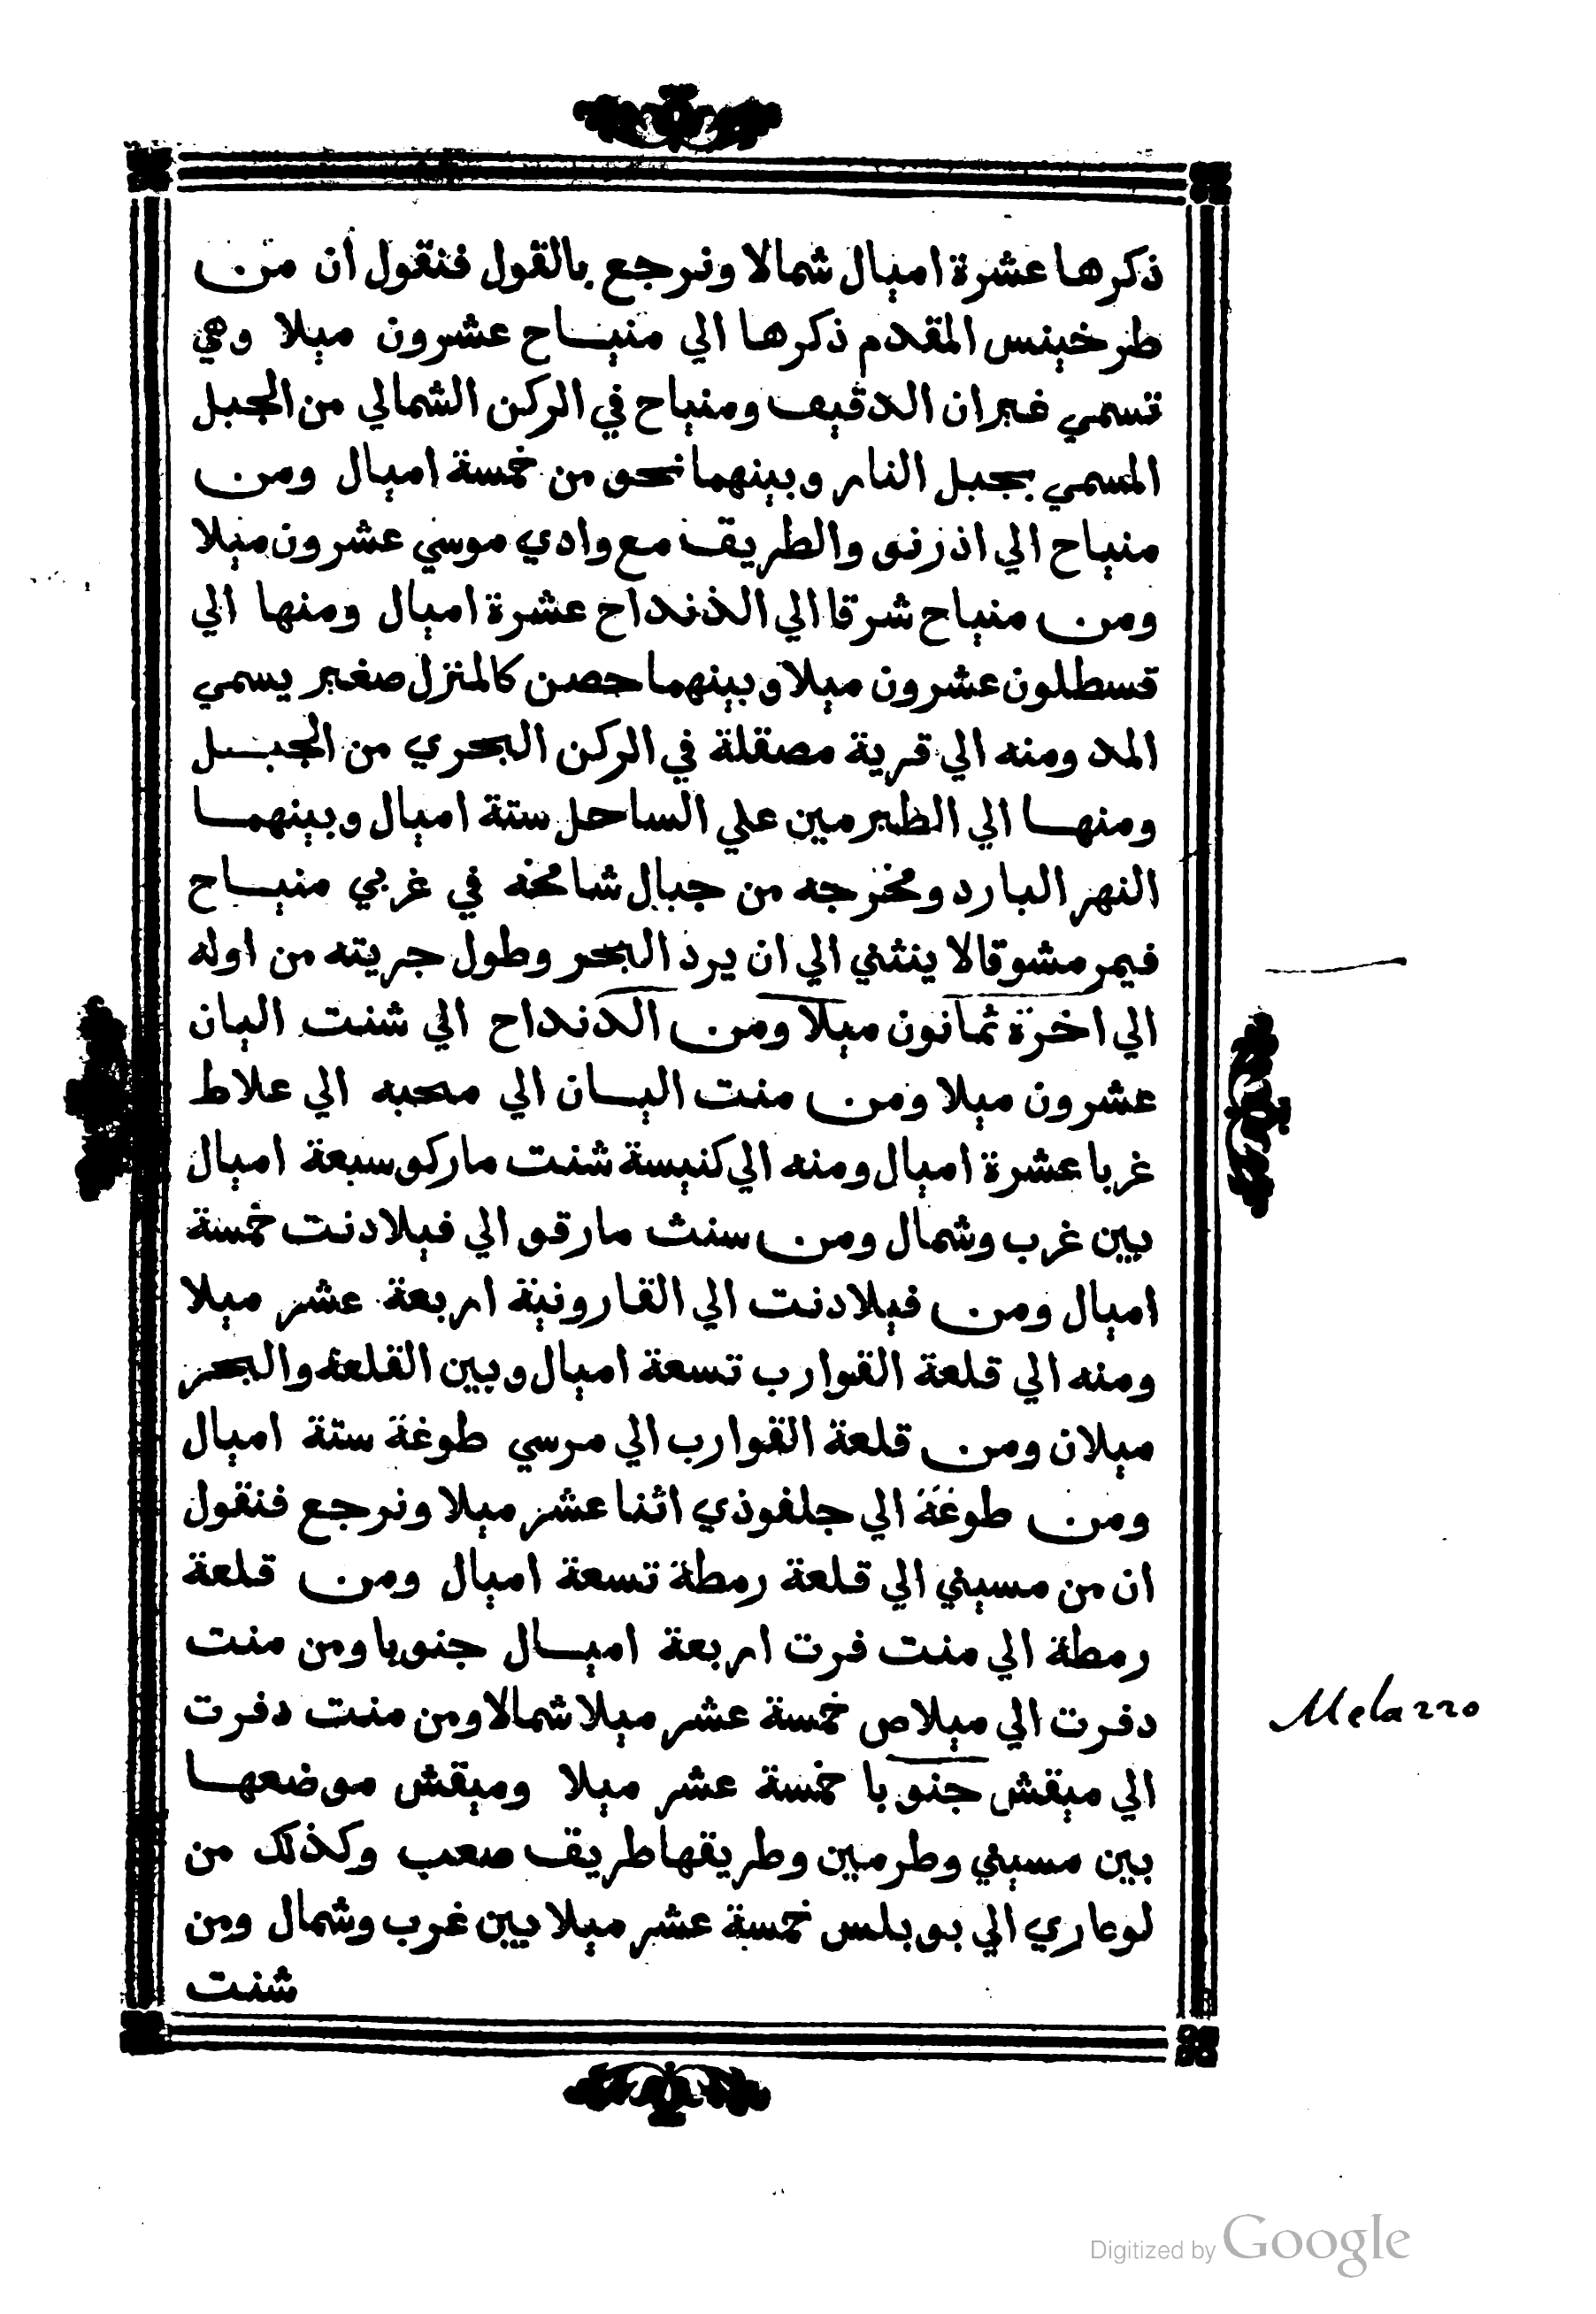 ذكرها عشرة اميال شمالا ونرجع بالقول فنقول ان من
طرخينس المقدم ذكرها الي منيـاح عشرون ميلا وهي
تسمي غيران الدقيف ومنياح في الركن الشمالي من الجبل
المسمي بجبل النار وبينهما نحو من خمسة اميال ومن
منياح الي اذرنو والطريف مع وادي موسي عشرون ميلا
ومن منياح شرقا الي الذنداح عشرة اميال ومنها الي
قسطلون عشرون ميلا وبينهما حصن كالمنزل صغير يسمي
المد ومنه الي قرية مصقلة في الركن البحري من الجبل
ومنها الي الطبرمين علي الساحل ستة اميال وبينهما
النهر البارد ومخرجه من جبال شامخه في غربي منيـاح
فيمر مشوقا لا ينثني الي ان يرد البحر وطول جريته من اوله
الي اخرة ثمانون ميلا ومن الدنداح الي شنت اليان
عشرون ميلا ومن منت اليـان الي محبه الي علاط
غربا عشرة اميال ومنه الي كنيسة شنت ماركو سبعة اميال
بين غرب وشمال ومن سنث مارقو الي فيلادنت خمسة
اميال ومن فيلادنت الي القارونية اربعة عشر ميلا
ومنه الي قلعة القوارب تسعة اميال وبين القلعة والبحر
ميلان ومن قلعة القوارب الي مرسي طوغة ستة اميال
ومن طوغة الي جلفوذي اثنا عشر ميلا ونرجع فنقول
ان من مسيني الي قلعة رمطة تسعة اميال ومن قلعة
رمطة الي منت فرت اربعة اميـال جنوبا ومن منت
دفرت الي ميلاص خمسة عشر ميلا شمالا ومن منت دفرت
الي ميقش جنوبا خمسة عشر ميلا وميقش موضعها
بين مسيني وطرمين وطريقها طريف صعب وكذلك من
لوعاري الي بوبلس خمسة عشر ميلا بين غرب وشمال ومن
شنت
Melazzo
Digitized by Google